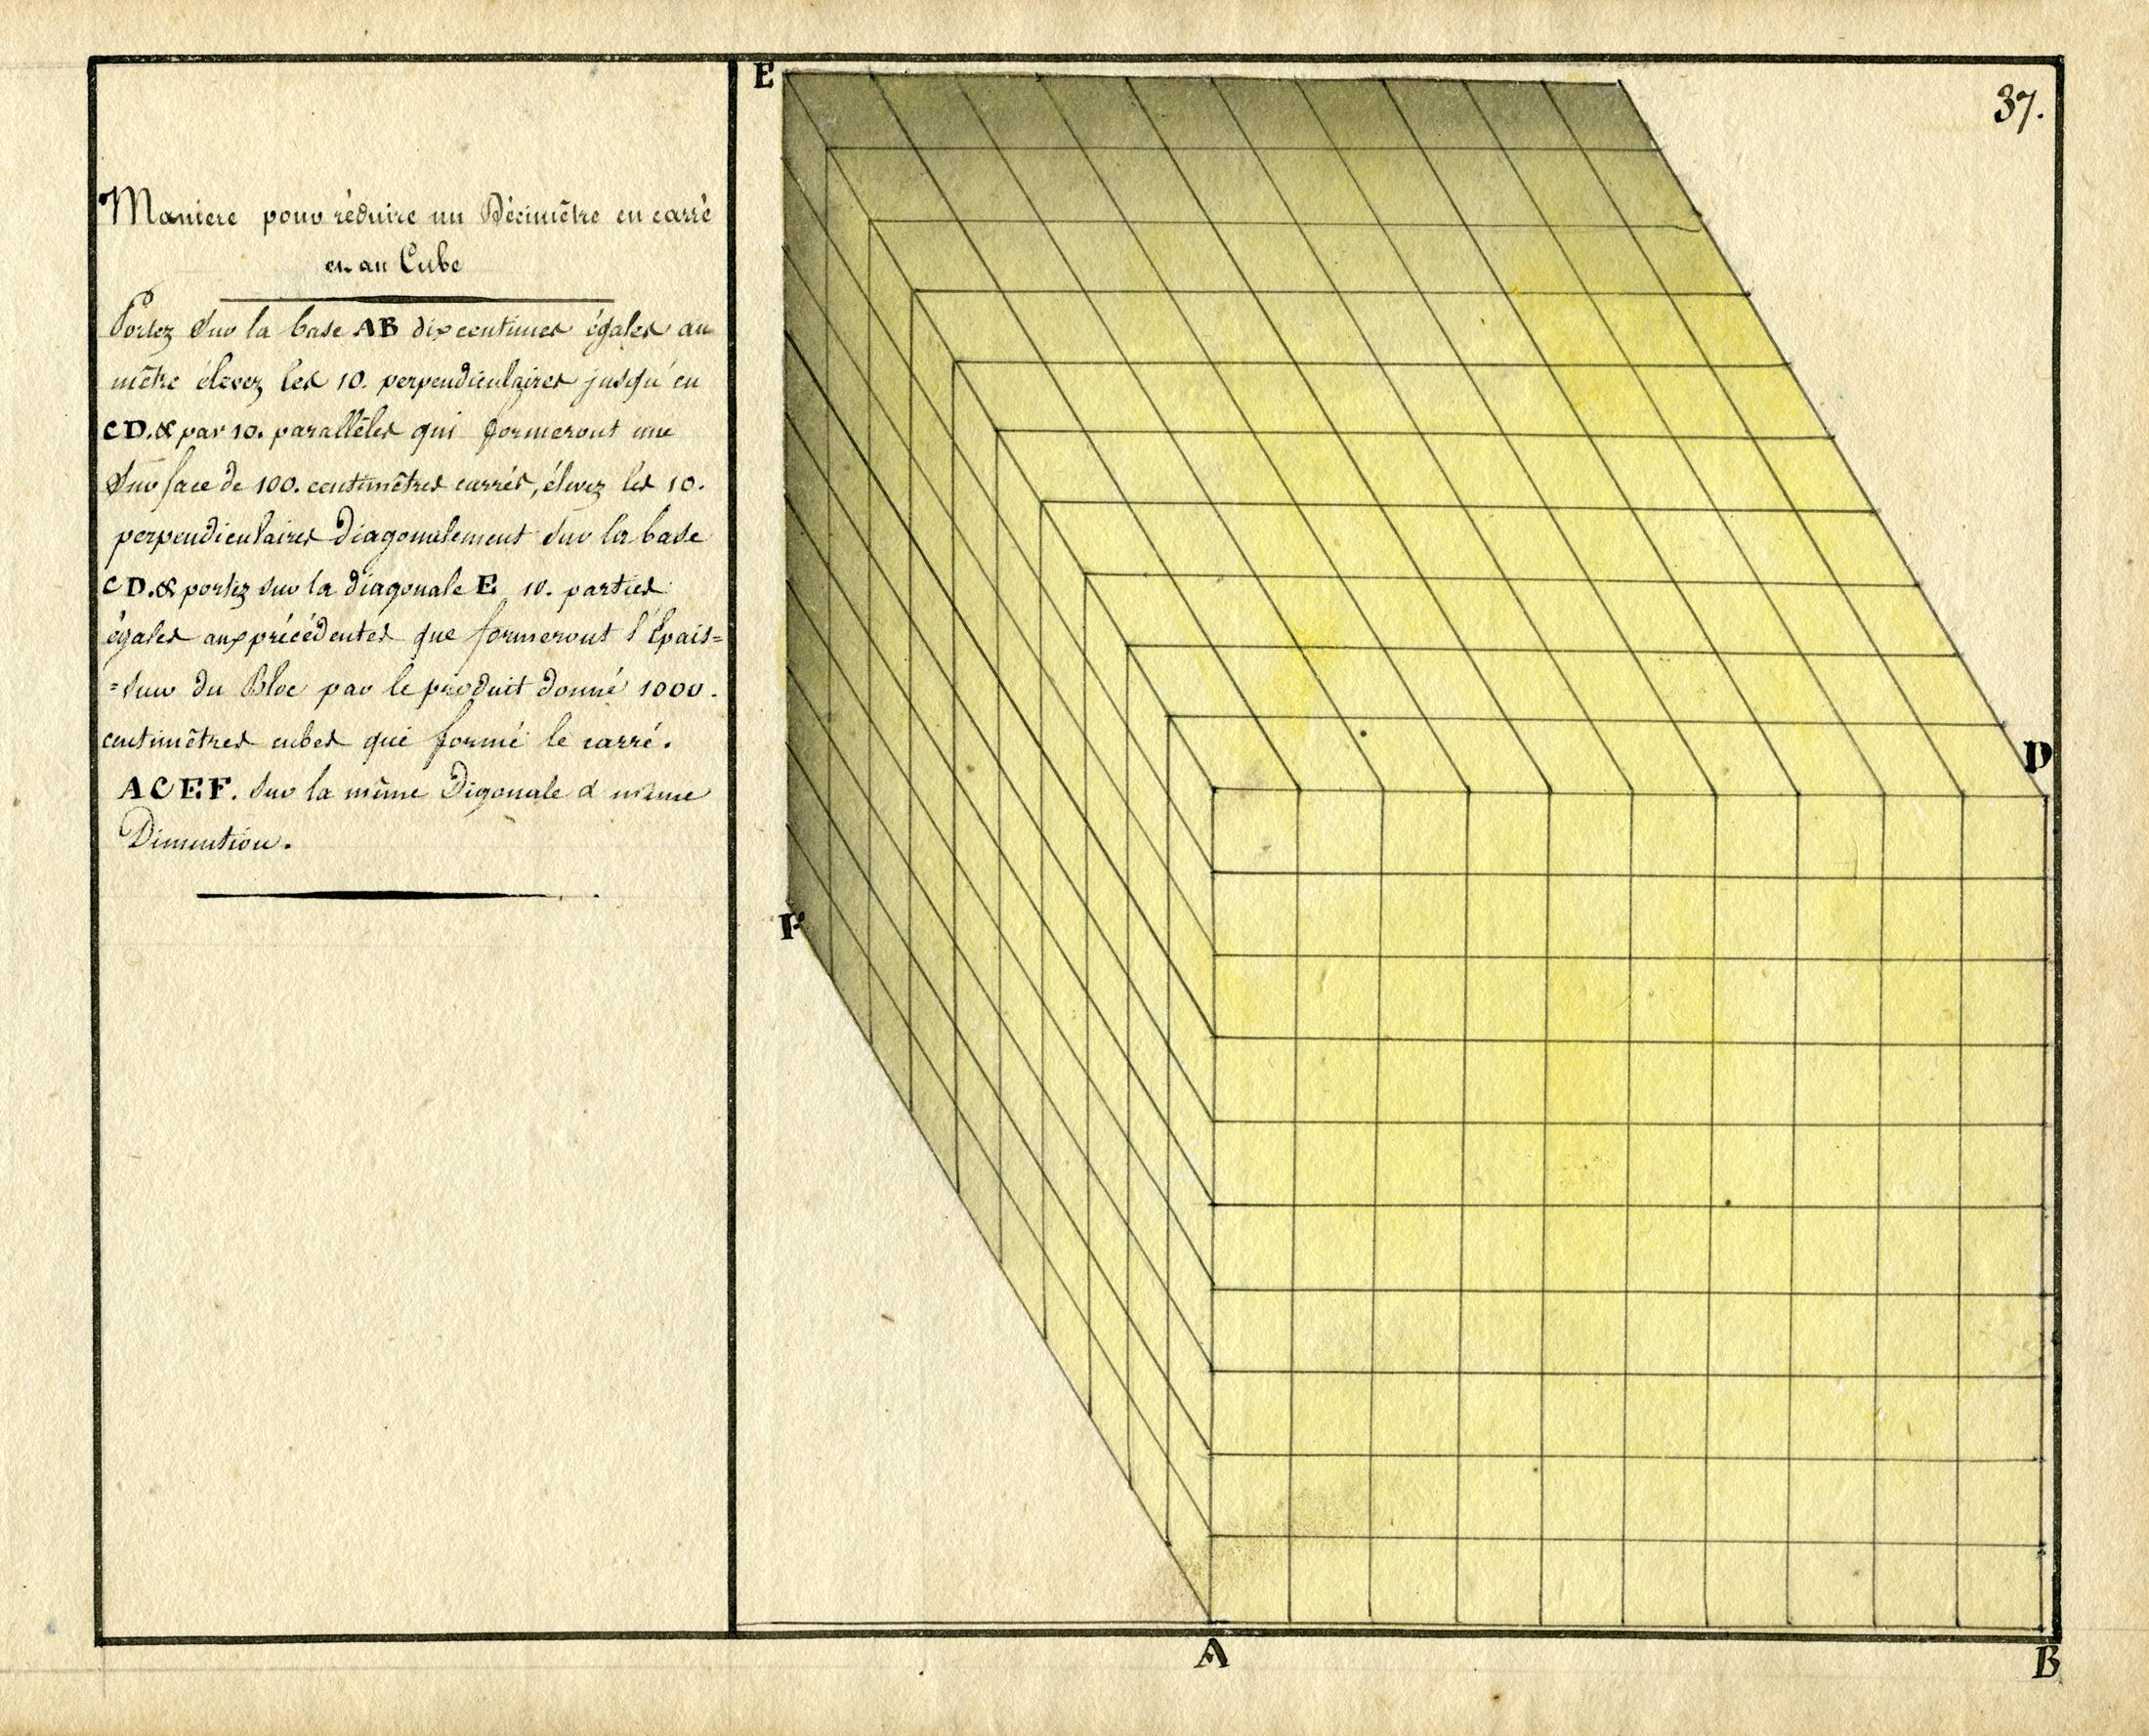 37.
Maniere pour réduire un Décimêtre en carré
et au Cube
Portez sur la base AB dix centimes égales au
mêtre élevez les 10. perpendiculaires jusqu'en
CD. & par 10. parallêles qui formeront une
surface de 100. centimêtres carrés, élevez les 10.
perpendiculaires Diagonalement sur la base
CD. & portez sur la diagonale E 10. parties
égales aux précédentes que formeront l'Épais=
=seur du Bloc par le produit donné 1000.
centimêtres cubes qui formé le carré.
ACEF. sur la même Digonale & même
Dimention.
E
D
F
A
B